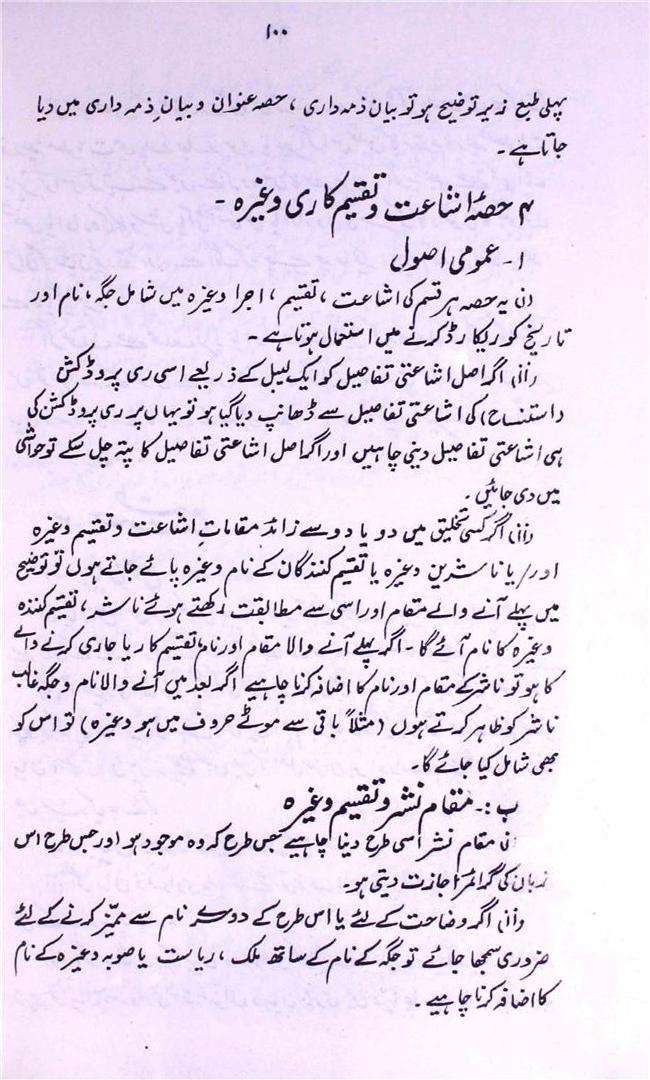 ۱۰۰
پہلی طبع زیر توضیح ہو تو بیان ذمہ داری ، حصہ عنوان و بیانِ ذمہ داری میں دیا
جاتا ہے ۔
۴ حصۂ اشاعت و تقسیم کاری وغیرہ ۔
۱ ۔ عمومی اصول
(i) یہ حصہ ہر قسم کی اشاعت ، تقسیم ، اجرا وغیرہ میں شامل جگہ ، نام اور
تاریخ کو ریکارڈ کرنے میں استعمال ہوتا ہے ۔
(ii) اگر اصل اشاعتی تفاصیل کو ایک لیبل کے ذریعے اسی ری پروڈکشن
(استنساخ) کی اشاعتی تفاصیل سے ڈھانپ دیا گیا ہو تو یہاں پر ری پروڈکشن کی
ہی اشاعتی تفاصیل دینی چاہیں اور اگر اصل اشاعتی تفاصیل کا پتہ چل سکے تو حواشی
میں دی جائیں ۔
(iii) اگر کسی تخلیق میں دو یا دو سے زائد مقاماتِ اشاعت و تقسیم وغیرہ
اور/یا ناشرین وغیرہ یا تقیم کنندگان کے نام وغیرہ پائے جاتے ہوں تو توضیح
میں پہلے آنے والے مقام اور اسی سے مطابقت رکھتے ہوئے ناشر ، تقسیم کنندہ
وغیرہ کا نام آئے گا ۔ اگر پہلے آنے والا مقام اور نام تقیسم کار یا جاری کرنے والے
کا ہو تو ناشر کے مقام اور نام کا اضافہ کرنا چاہیے اگر بعد میں آنے والا نام و جگہ غالب
ناشر کو ظاہر کرتے ہوں (مثلاً باقی سے موٹے حروف میں ہو وغیرہ) تو اس کو
بھی شامل کیا جائے گا ۔
ب :۔ مقام نشر و تقسیم وغیرہ
(i) مقام نشر اسی طرح دینا چاہیے جس طرح کہ وہ موجود ہو اور جس طرح اس
زبان کی گرائمر اجازت دیتی ہو ۔
(ii) اگر وضاحت کے لئے یا اس طرح کے دوسرے نام سے ممیّز کرنے کے لئے
ضروری سمجھا جائے تو جگہ کے نام کے ساتھ ملک ، ریاست یا صوبہ وغیرہ کے نام
کا اضافہ کرنا چاہیے ۔